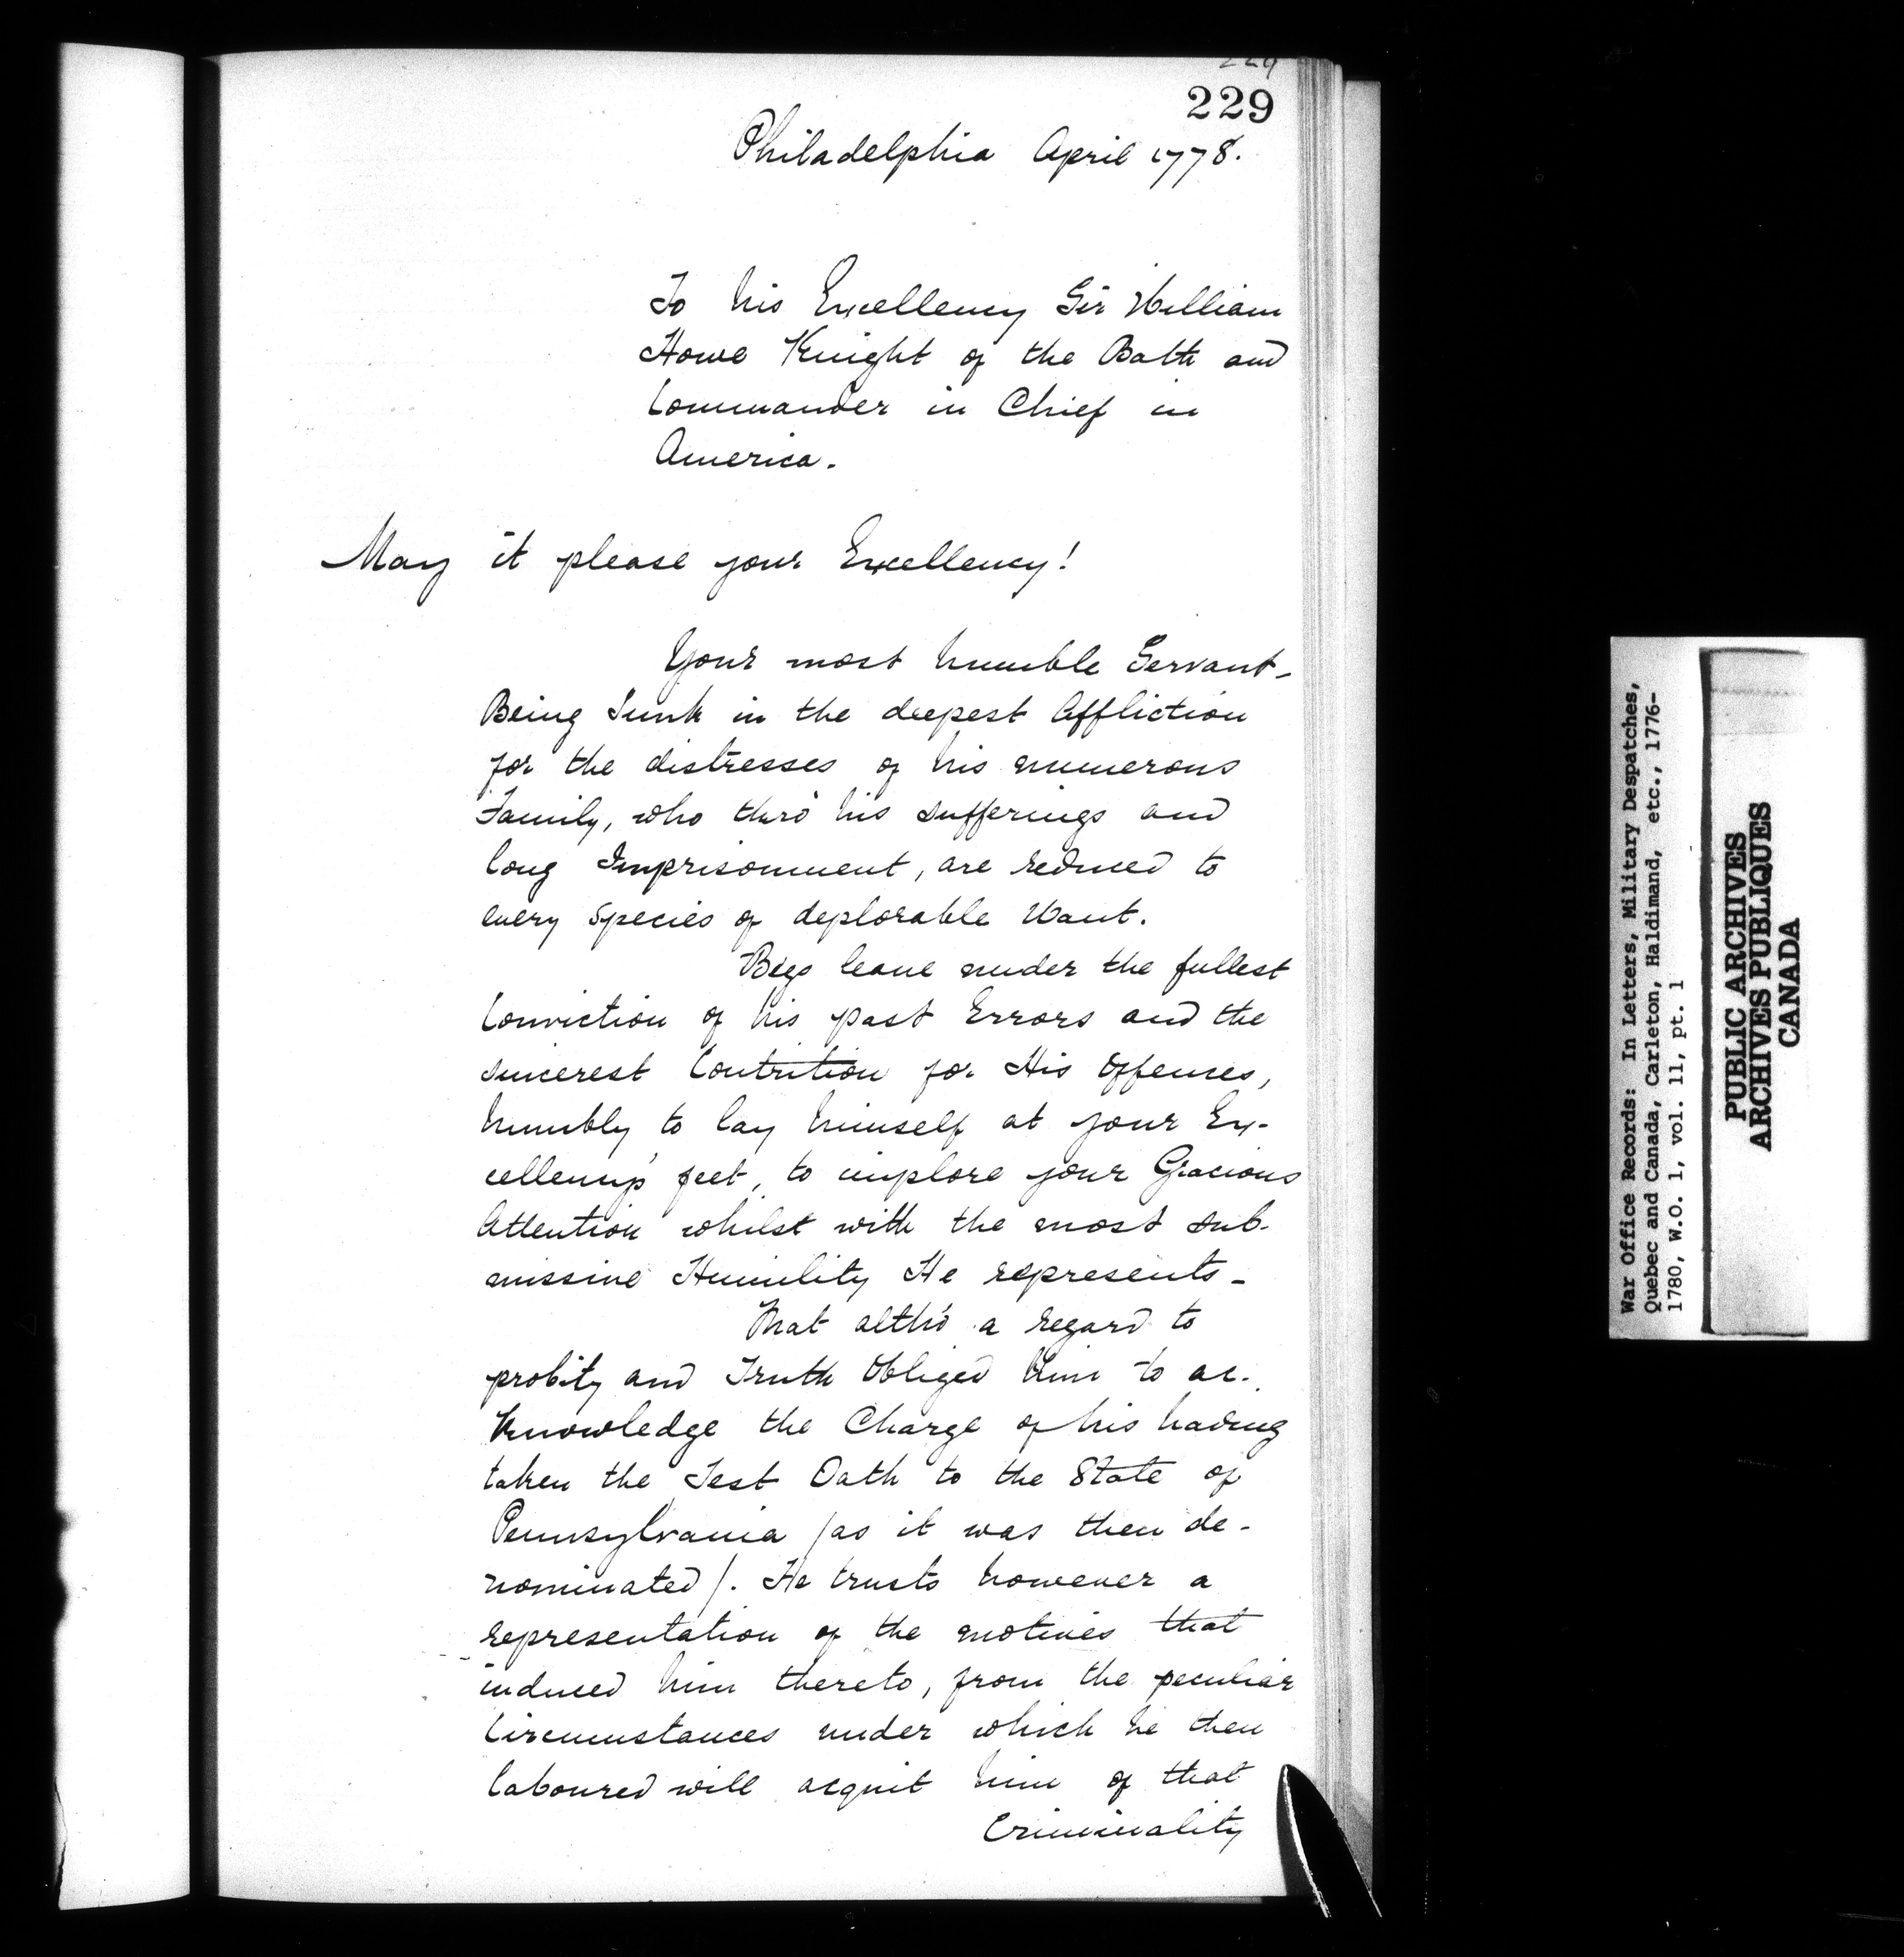 229
229
Philadelphia April 1778.
To his Excellency Sir William
Howe Knight of the Bath and
Commander in Chief in
America.
May it please your Excellency!
Your most humble Servant-
Being Sunk in the deepest Affliction
for the distresses of his numerous
Family, who thro' his sufferings and
long Imprisonment, are reduced to
every Species of deplorable Want.
Begs leave under the fullest
Conviction of his past Errors and the
sincerest Contrition for His Offences,
humbly to lay himself at your Ex-
cellency's feet, to implore your Gracious
Attention whilst with the most sub-
missive Humility He represents-
That altho' a regard to
probity and Truth Obliged him to ac-
knowledge the Charge of his having
taken the Test Oath to the State of
Pennsylvania /as it was then de-
nominated/. He trusts however a
representation of the motives that
induced him thereto, from the peculiar
Circumstances under which he then
laboured will acquit him of that
Criminality
War Office Records: In Letters, Military Despatches,
Quebec and Canada, Carleton, Haldimand, etc., 1776-
1780, W.O. 1, vol. 11, pt. 1
PUBLIC ARCHIVES
ARCHIVES PUBLIQUES
CANADA